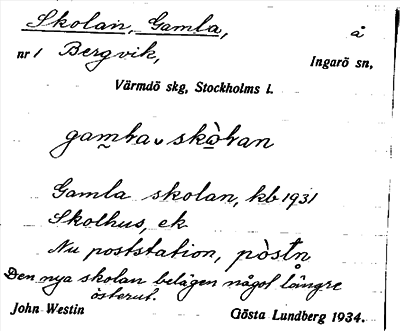 Skolan, Gamla, å
nr 1 Bergvik, Ingarö sn,
Värmdö skg, Stockholms l.
gamla skòlan
Gamla skolan, kb 1931
Skolhus, ek
Nu poststation, pòstn
Den nya skolan belägen något längre
österut.
John Westin Gösta Lundberg 1934.